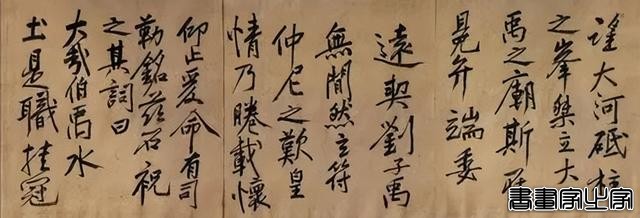 望大河砥柱
之峯桀立大
禹之廟斯在
冕弁端委
遠契劉子禹
無間然玄符
仲尼之歎皇
情乃睠載懷
仰止爰命有司
勒銘茲石祝
之其詞曰
大哉伯禹水
土是職挂冠
書畫家之家